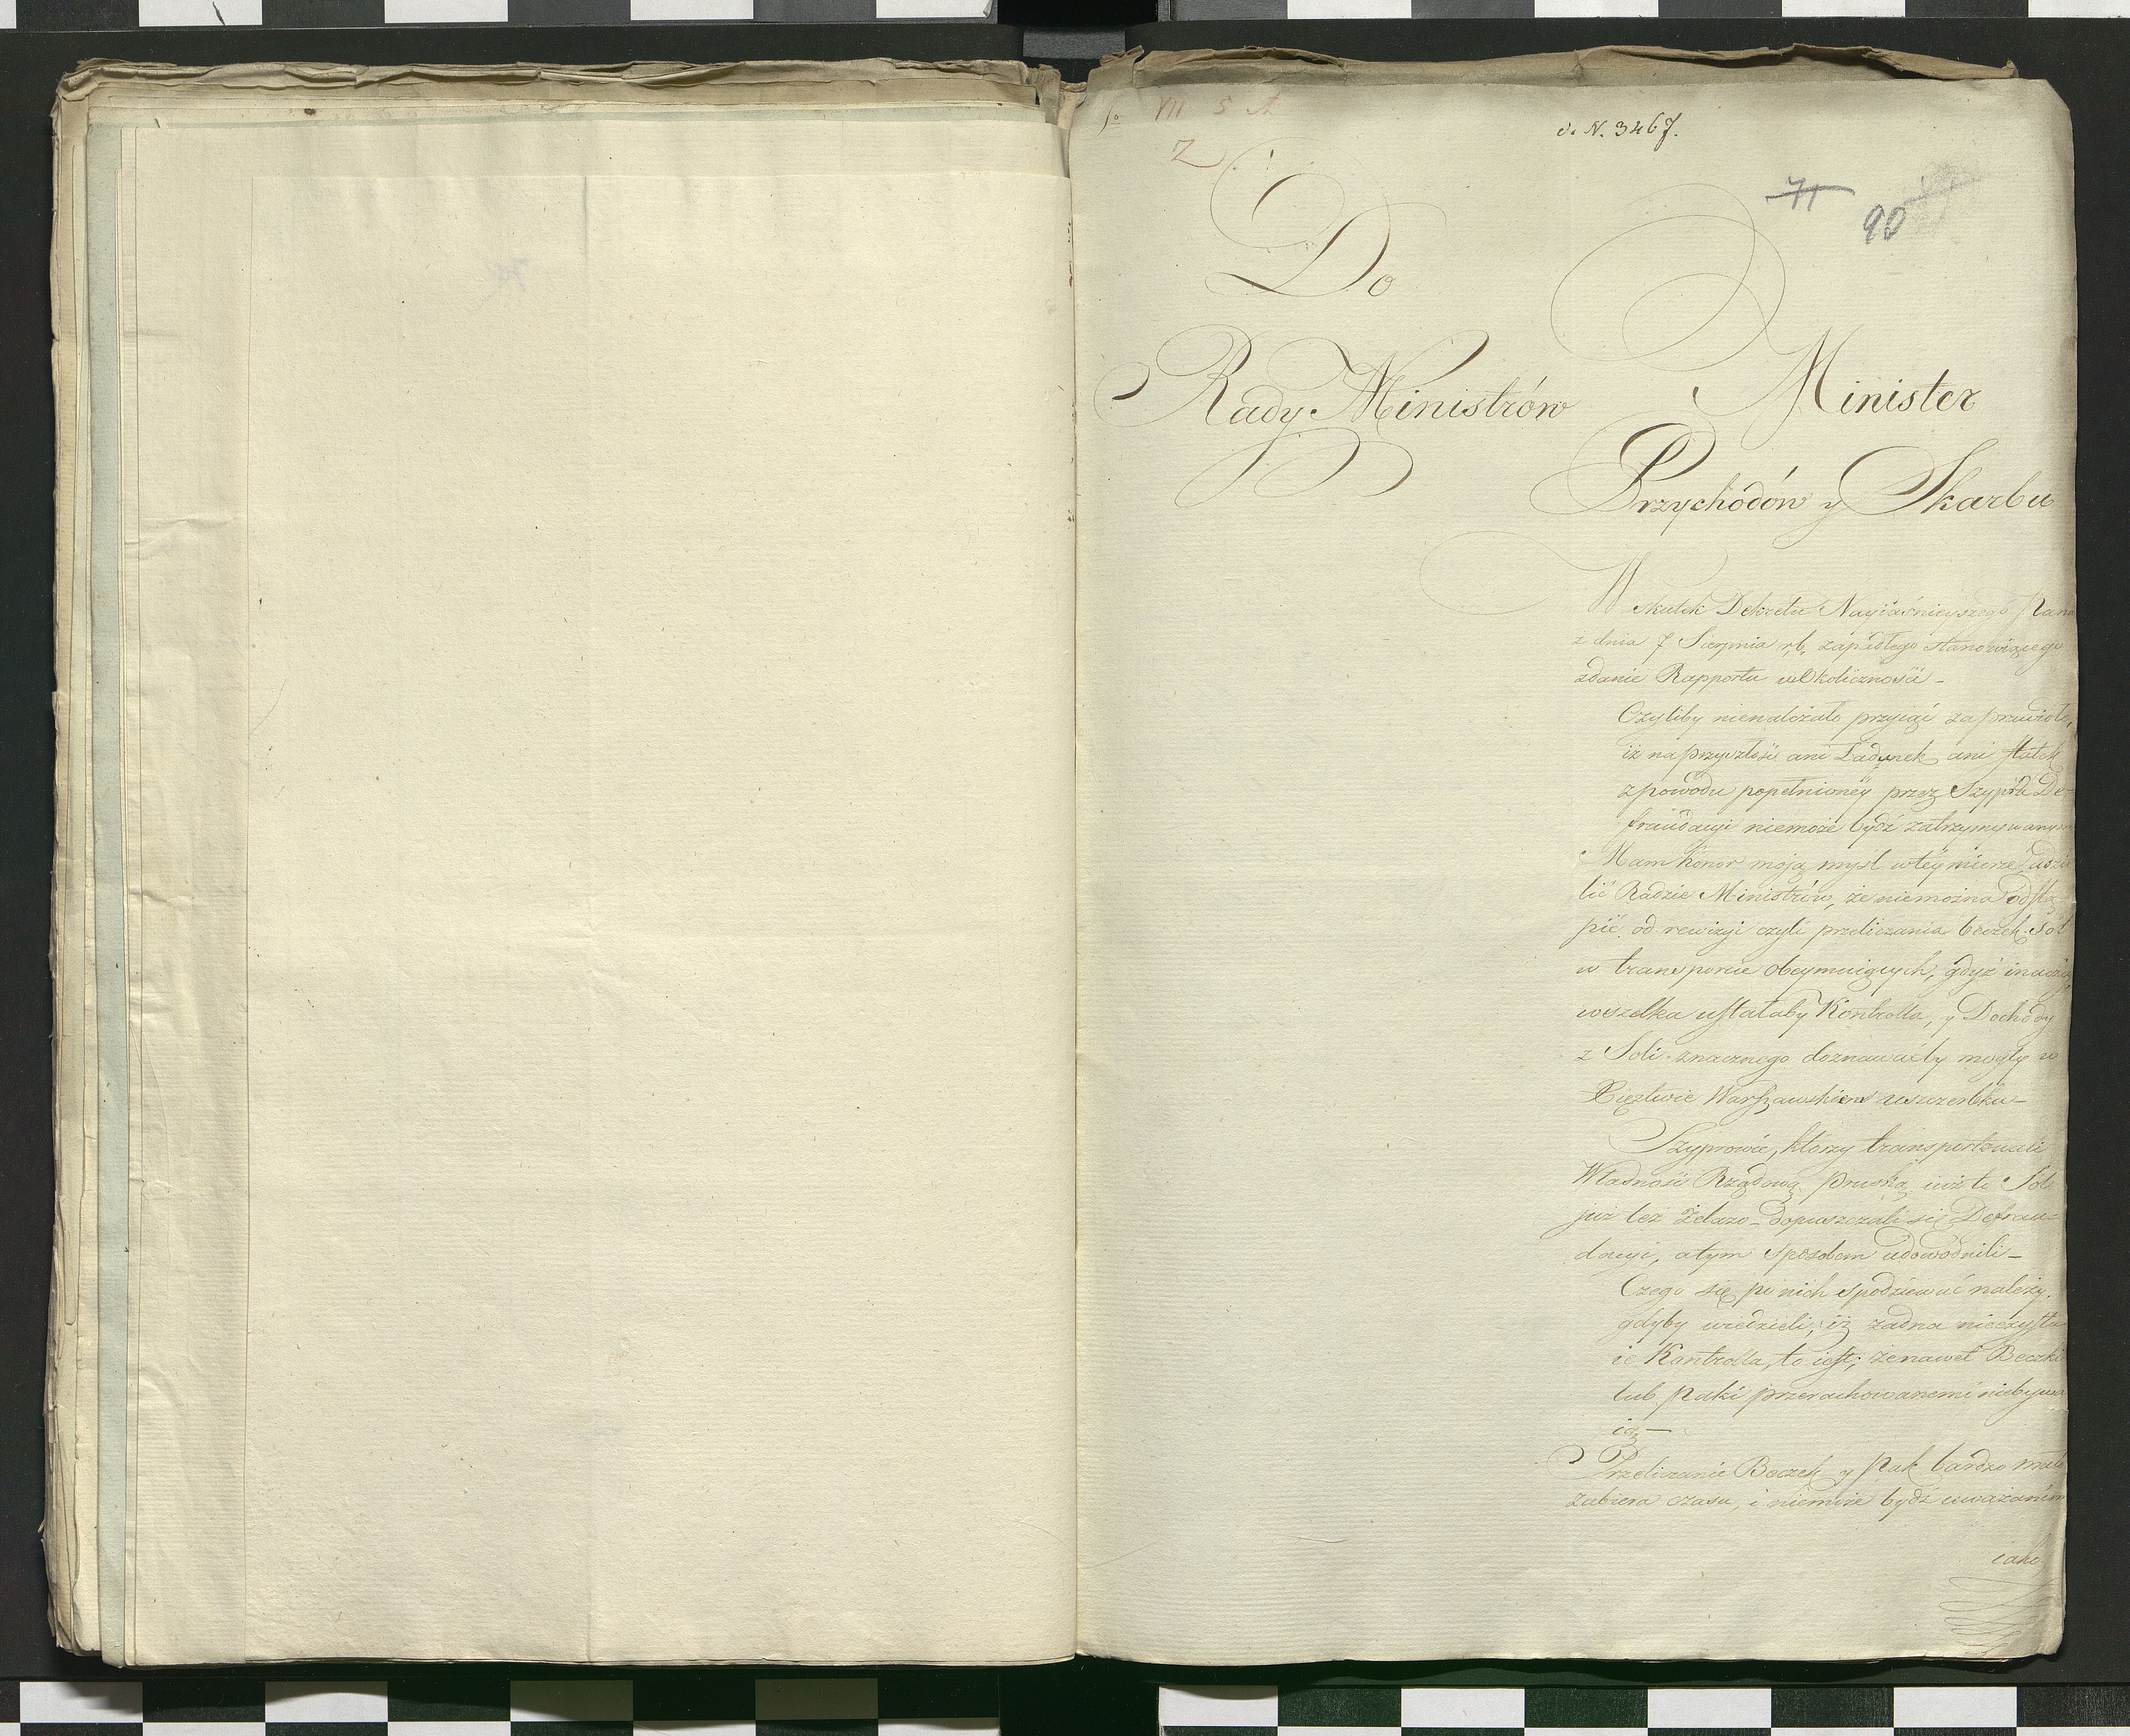 VII 5 A
2
d. N. 3467.
71
90
Do
Rady Ministrów
Minister
Przychodów y Skarbu
W skutek Dekretu Nayiaśnieyszego Pana
z dnia 7 Sierpnia r.b. zapadłego stanowiącego
zdanie Rapportu w Okoliczności –
Czyliby nienależało przyiąć za prawidło,
iż na przyszłość ani Ładunek ani statek
z powodu popełnioney przez Szypra De-
fraudacyi niemoże bydź zatrzymywanym
Mam honor moją myśl w tey mierze udzie
lić Radzie Ministrów, że niemożna odstą-
pić od rewizyi czyli przeliczania beczek Sól
w transporcie obeymuiących, gdyż inaczey
wszelka ustałaby Kontrolla, y Dochody
z Soli znacznego doznawaćby mogły w
Xięztwie Warszawskiem uszczerbku –
Szyprowie, którzy transportowali
Własność Rządową Pruską iuż to Sól
już też Żelazo – dopuszczali się Defrau-
dacyi, a tym sposobem udowodnili –
Czego się po nich spodziewać należy,
gdyby wiedzieli, iż żadna nieexystu
ie Kontrolla, to iest; że nawet Beczki
lub Paki przerachowanemi niebywa
ią –
Przeliczanie Beczek y Pak bardzo mało
zabiera czasu, i niemoże bydź uważanem
iako